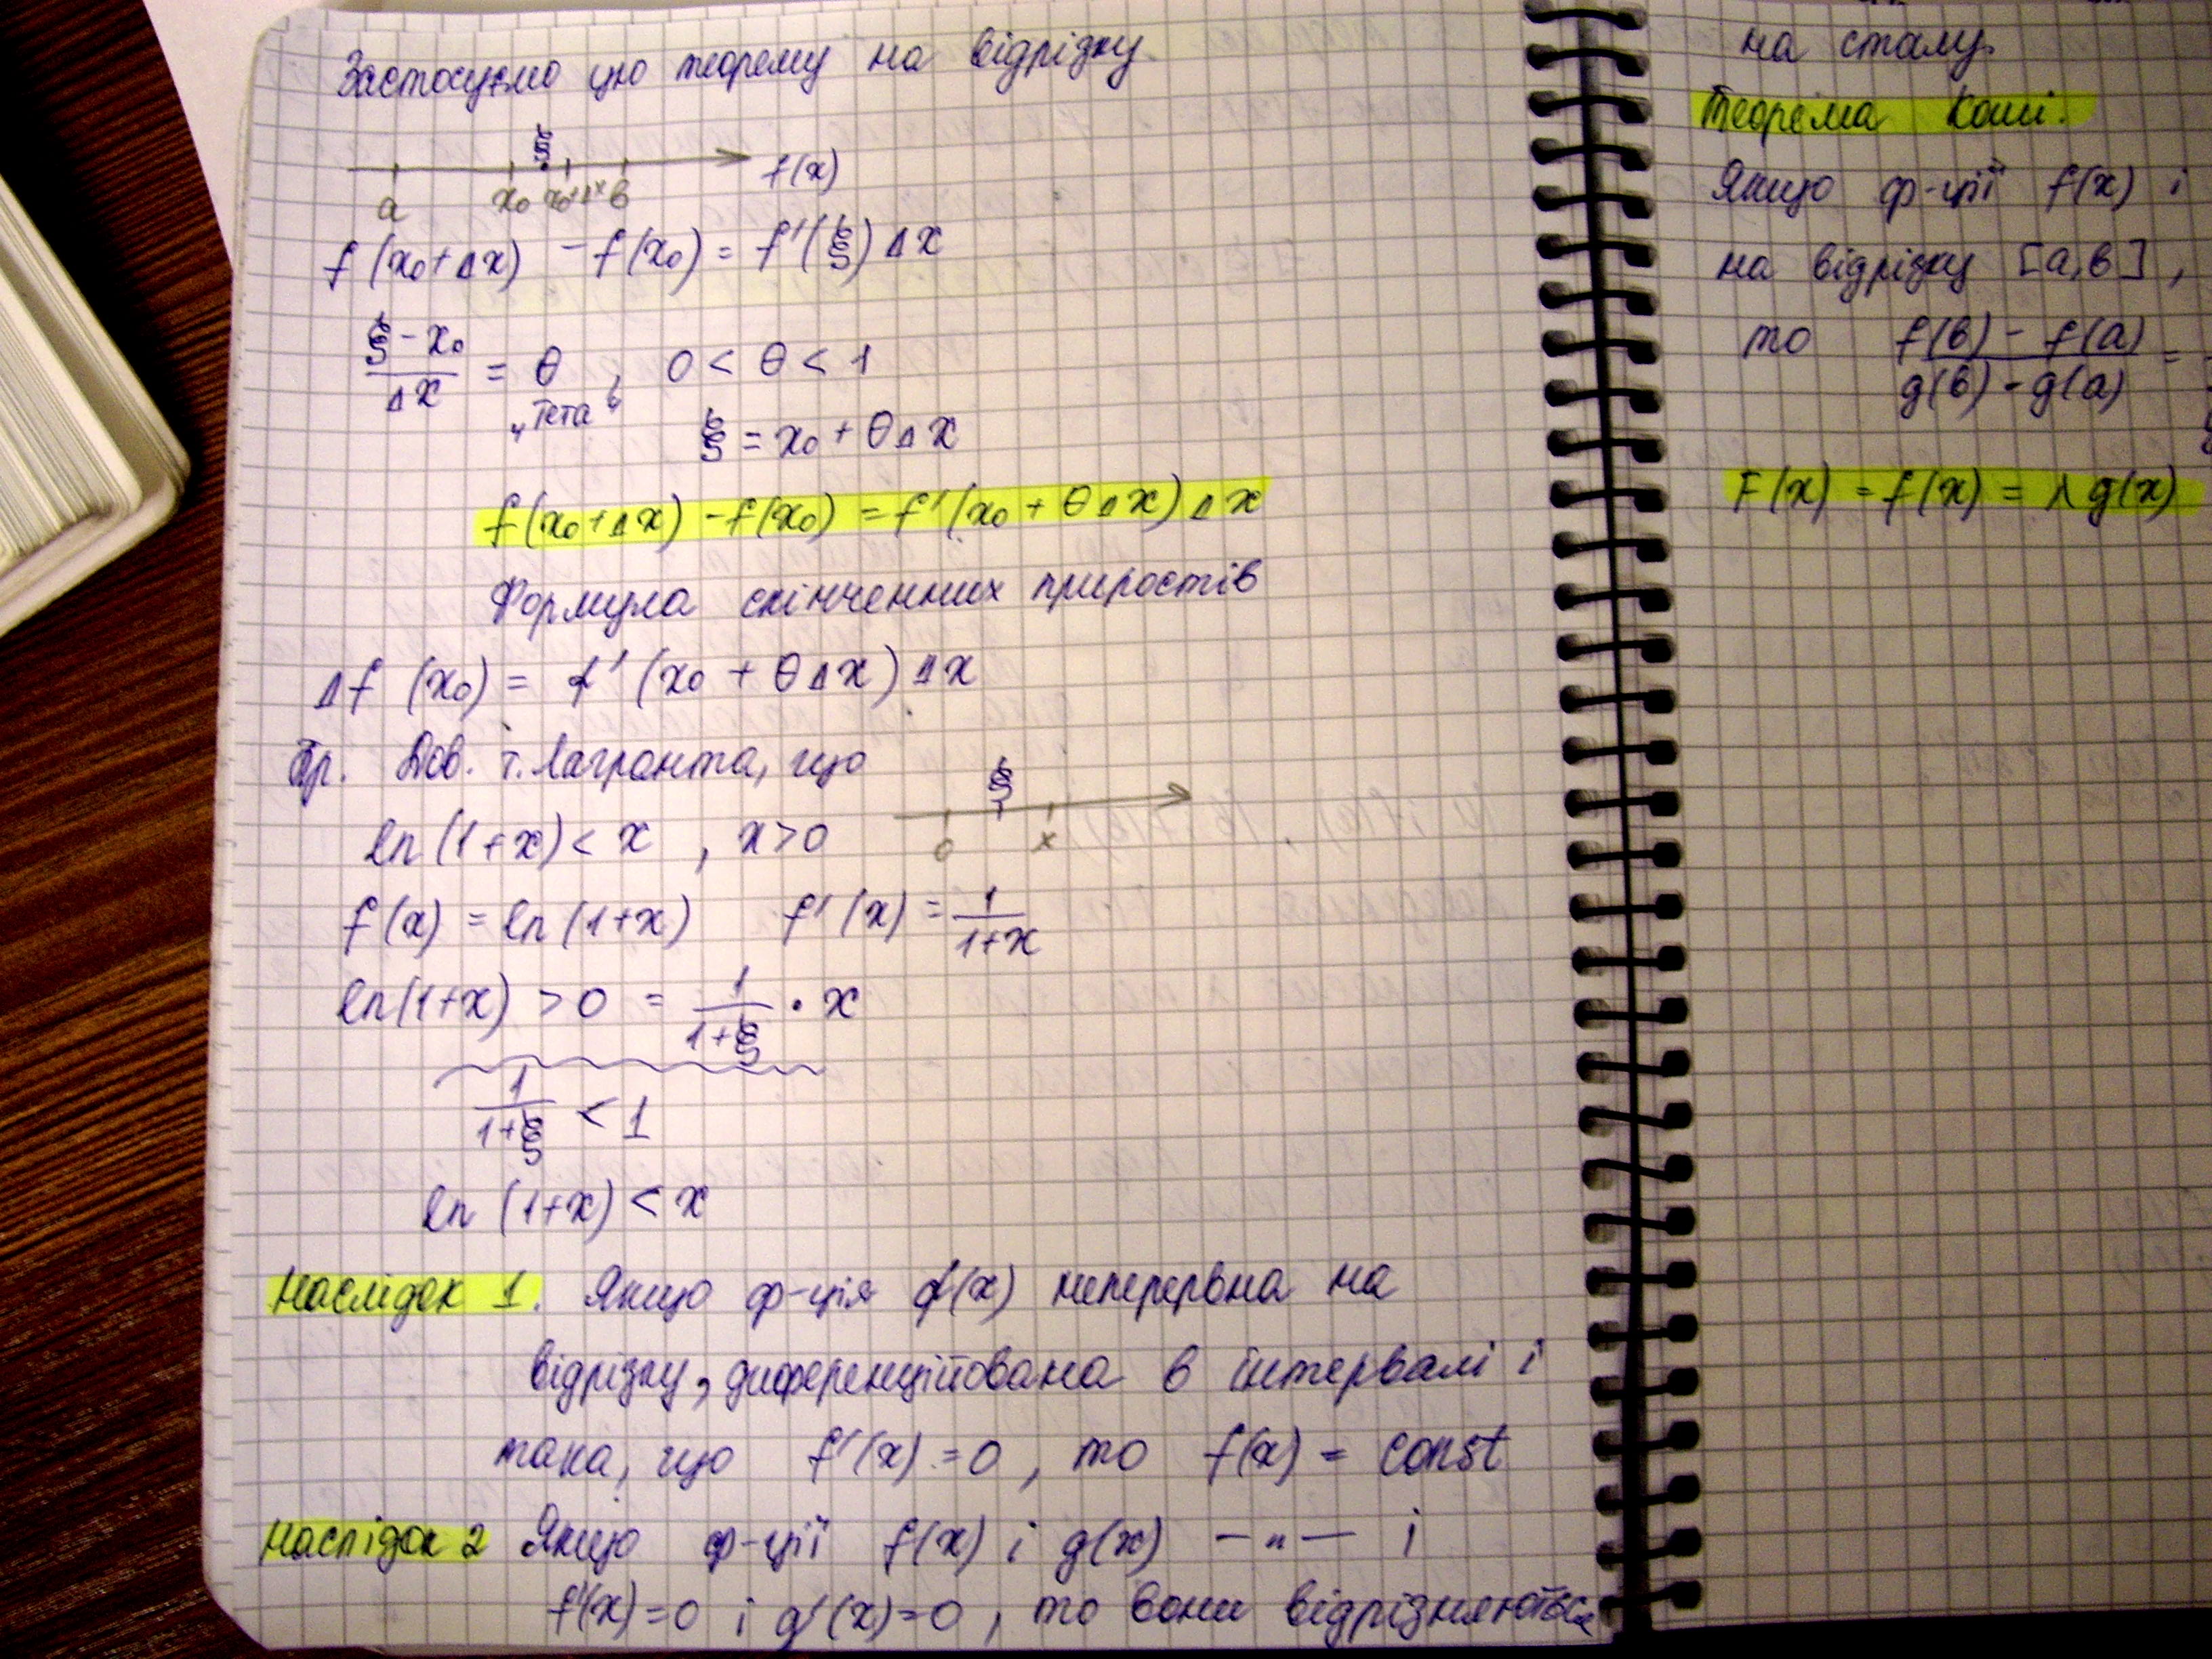 Застосуємо цю теорему на відрізку
ξ
a x₀ x₀+Δx b f(x)
f(x₀+Δx) - f(x₀) = f'(ξ) Δx
(ξ - x₀)/Δx = θ , 0 < θ < 1
„Тета“
ξ = x₀ + θΔx
f(x₀+Δx) - f(x₀) = f'(x₀ + θΔx) Δx
Формула скінченних приростів
Δf (x₀) = f'(x₀ + θΔx) Δx
Пр. Дов. т. Лагранжа, що
ξ
0 x
ln(1+x) < x , x>0
f(x) = ln(1+x) f'(x) = 1/(1+x)
ln(1+x) > 0 = 1/(1+ξ) · x
1/(1+ξ) < 1
ln (1+x) < x
Наслідок 1. Якщо ф-ція f(x) неперервна на
відрізку, диференційована в інтервалі і
така, що f'(x) = 0, то f(x) = const
Наслідок 2 Якщо ф-ції f(x) і g(x) —"— і
f'(x)=0 і g'(x)=0, то вони відрізняються
на сталу.
Теорема Коші.
Якщо ф-ції f(x) і
на відрізку [a,b],
то (f(b) - f(a))/(g(b) - g(a)) =
F(x) = f(x) = λ g(x)